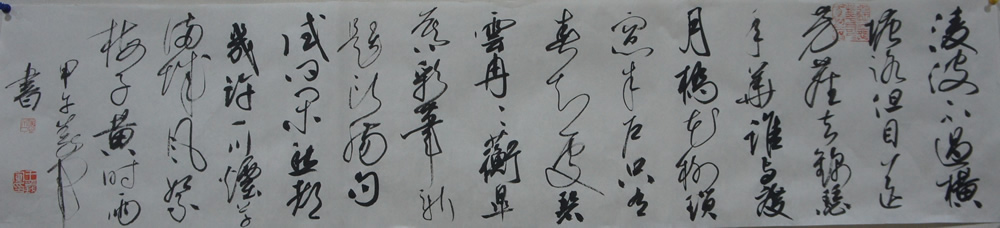 淩波不過橫
塘路但目送
芳塵去錦瑟
年華誰與度
月橋花瑣
窗朱戶只有
春知處碧
雲冉冉蘅皋
暮彩筆新
題斷腸句
試問閑愁都
幾許一川煙草
滿城風絮
梅子黃時雨
甲午
書